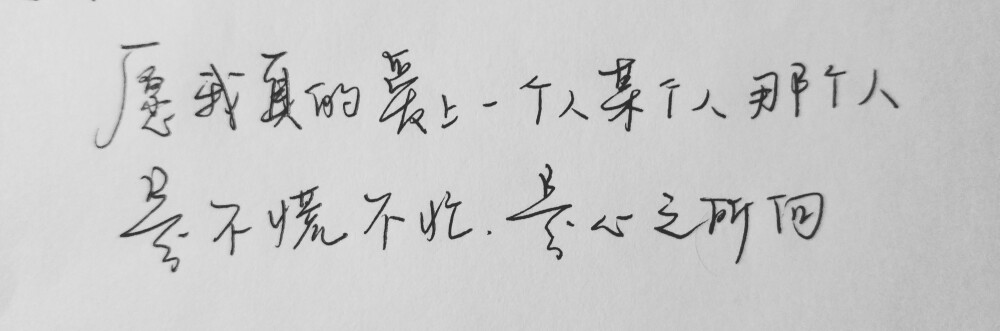 愿我真的爱上一个人某个人那个人
是不慌不忙.是心之所向